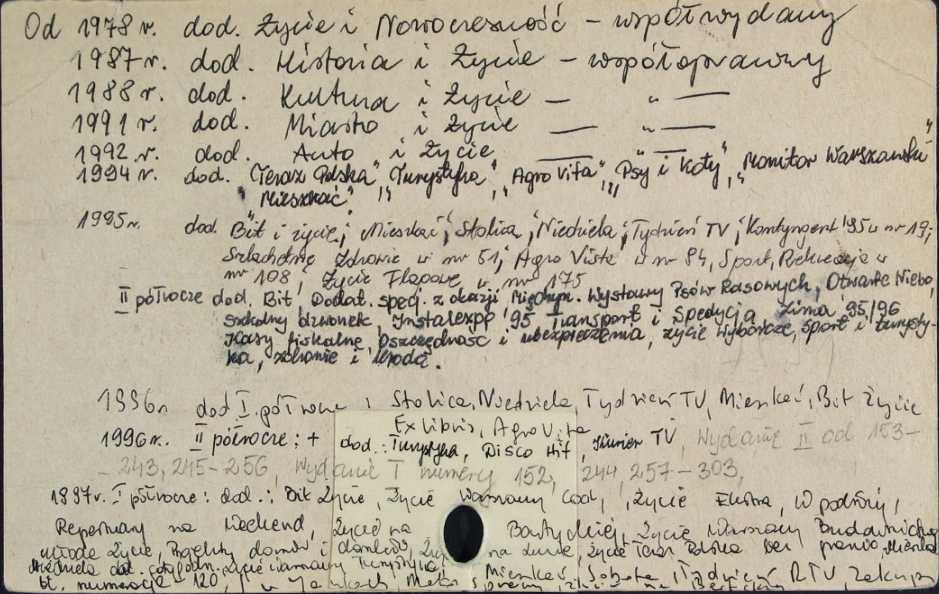 Od 1978 r. dod. Życie i Nowoczesność – współwydany
1987 r. dod. Historia i Życie – współoprawny
1988 r. dod. Kultura i Życie — " —
1991 r. dod. Miasto i Życie — " —
1992 r. dod. Auto i Życie — " —
1994 r. dod. "Teraz Polska" "Turystyka", "Agro Vita", "Psy i Koty", "Monitor Warszawski"
"Mieszkać"
1995 r. dod. Bit i życie; Mieszkać; Stolica; Niedziela; Tydzień TV; Kontyngent '95 w nr 19;
Szlachetne Zdrowie w nr 51; Agro Vista w nr 84, Sport, Rekreacja w
nr 108; Życie Flagowe w nr 175
II półrocze dod. Bit, Dodat. specj. z okazji Międzyn. Wystawy Psów Rasowych, Otwarte Niebo,
szkolny dzwonek, Instalexpo '95 Transport i Spedycja Zima '95/96
Kasy fiskalne, Oszczędność i ubezpieczenia, życie wyborcze, sport i turysty-
ka, zdrowie i uroda.
1996 r. dod I półrocze: Stolica, Niedziela, Tydzień TV, Mieszkać, Bit Życie
Ex libris, Agro Vita
1996 r. II półrocze: + dod.: Turystyka, Disco Hit, Kurier TV, Wydanie II od 153–
– 243, 245–256, Wydanie I numery 152, 244, 257–303,
1997 r. I półrocze: dod.: Bit Życie, Życie Warszawy Cool, Życie Ekstra, W podróży,
Repertuary na Weekend, Życie na Bałtyckiej, Życie Warszawy Budownictwo
Młode Życie, Projekty domów i na Życie Teraz Polska
Niedziela dod. Życie Warszawy Turystyka, Mieszkać, Sobota, Tydzień RTV, Zakupy
bł. numeracja – 120,